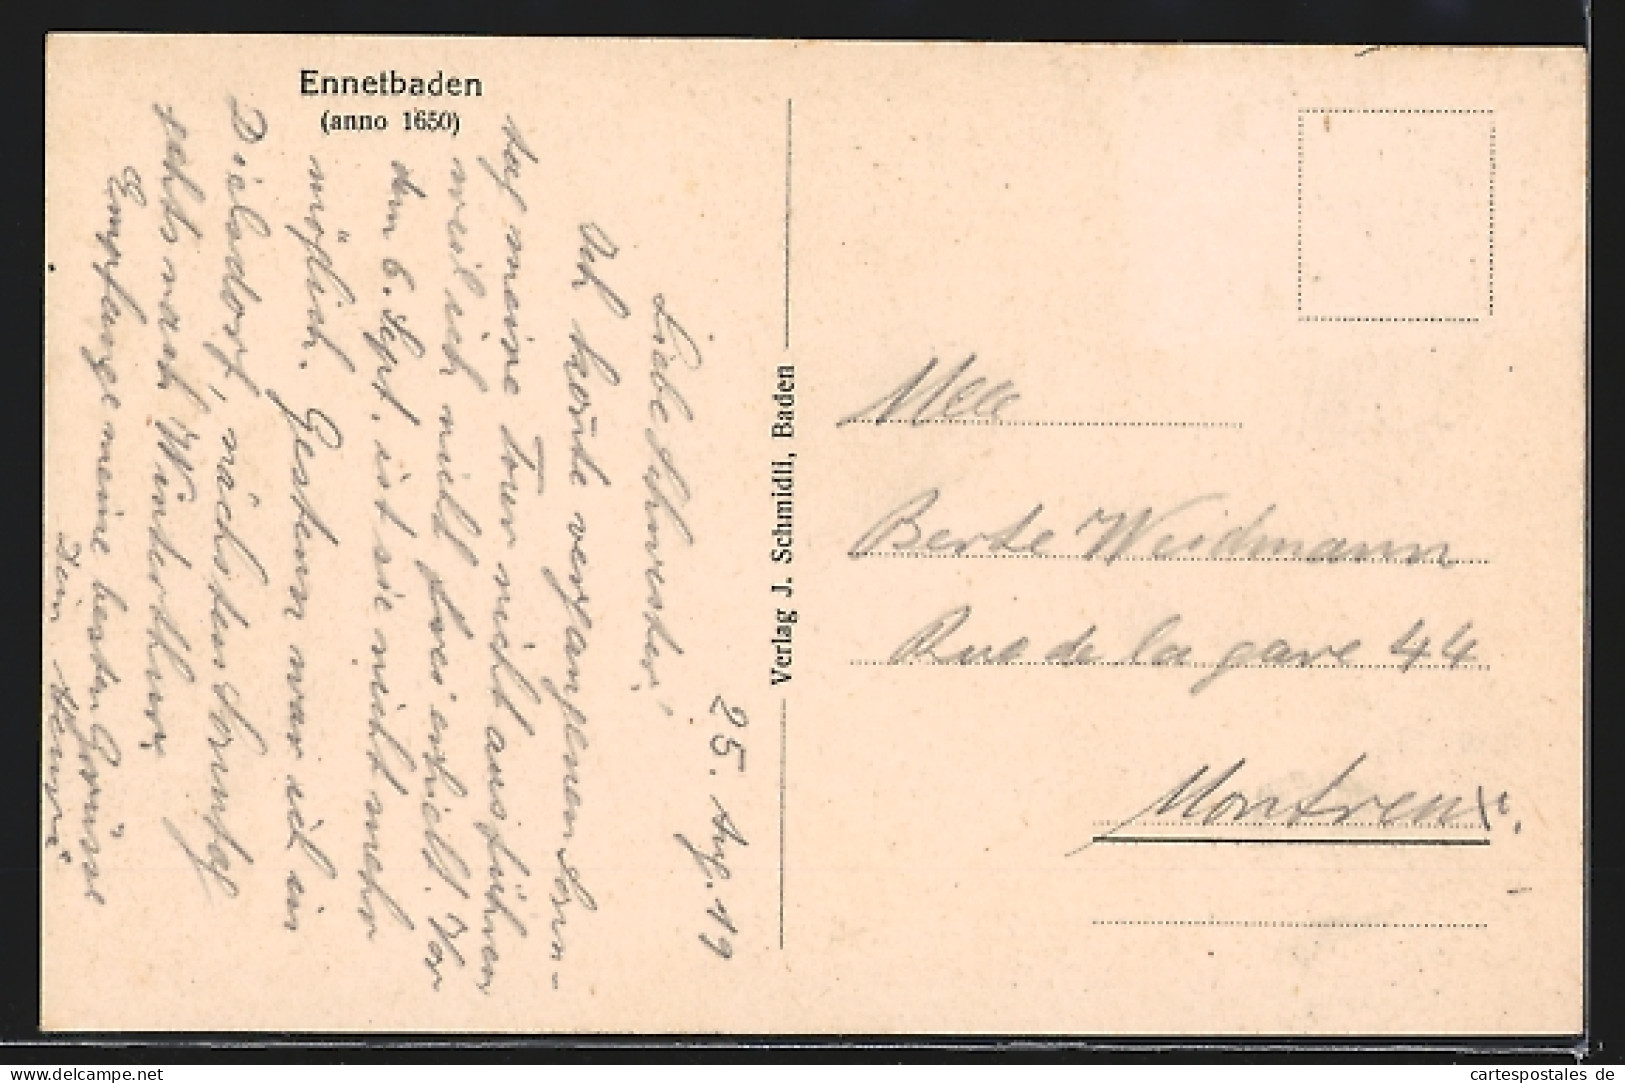 Ennetbaden
(anno 1650)
25. Aug. 19
Liebe Schwester!
Ich konnte vergangenen Sonn-
tag meine Tour nicht ausführen
weil ich nicht frei erhielt. Vor
dem 6. Sept. ist sie nicht mehr
möglich. Gestern war ich in
Dielsdorf, nächsten Sonntag
gehts nach Winterthur
Empfange meine besten Grüsse
Dein Henri
Verlag J. Schmidli, Baden
Berte Weidmann
Rue de la gare 44
Montreux
cartespostales de
www.delcampe.net